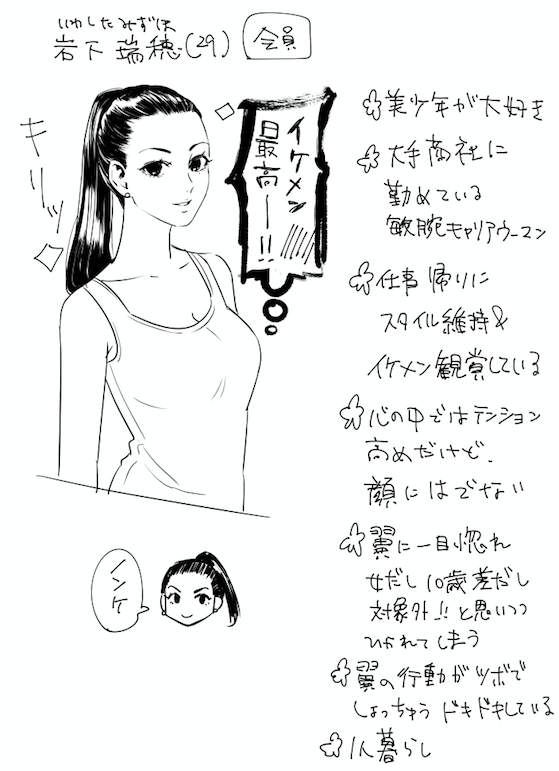 いわしたみずほ
岩下瑞穂(29)
会員
キリッ
イケメン
最高ー!!
✿美少年が大好き
✿大手商社に
勤めている
敏腕キャリアウーマン
✿仕事帰りに
スタイル維持&
イケメン観賞している
✿心の中ではテンション
高めだけど、
顔にはでない
✿翼に一目惚れ
女だし10歳差だし
対象外!!と思いつつ
ひかれてしまう
✿翼の行動がツボで
しょっちゅうドキドキしている
✿1人暮らし
ノンケ